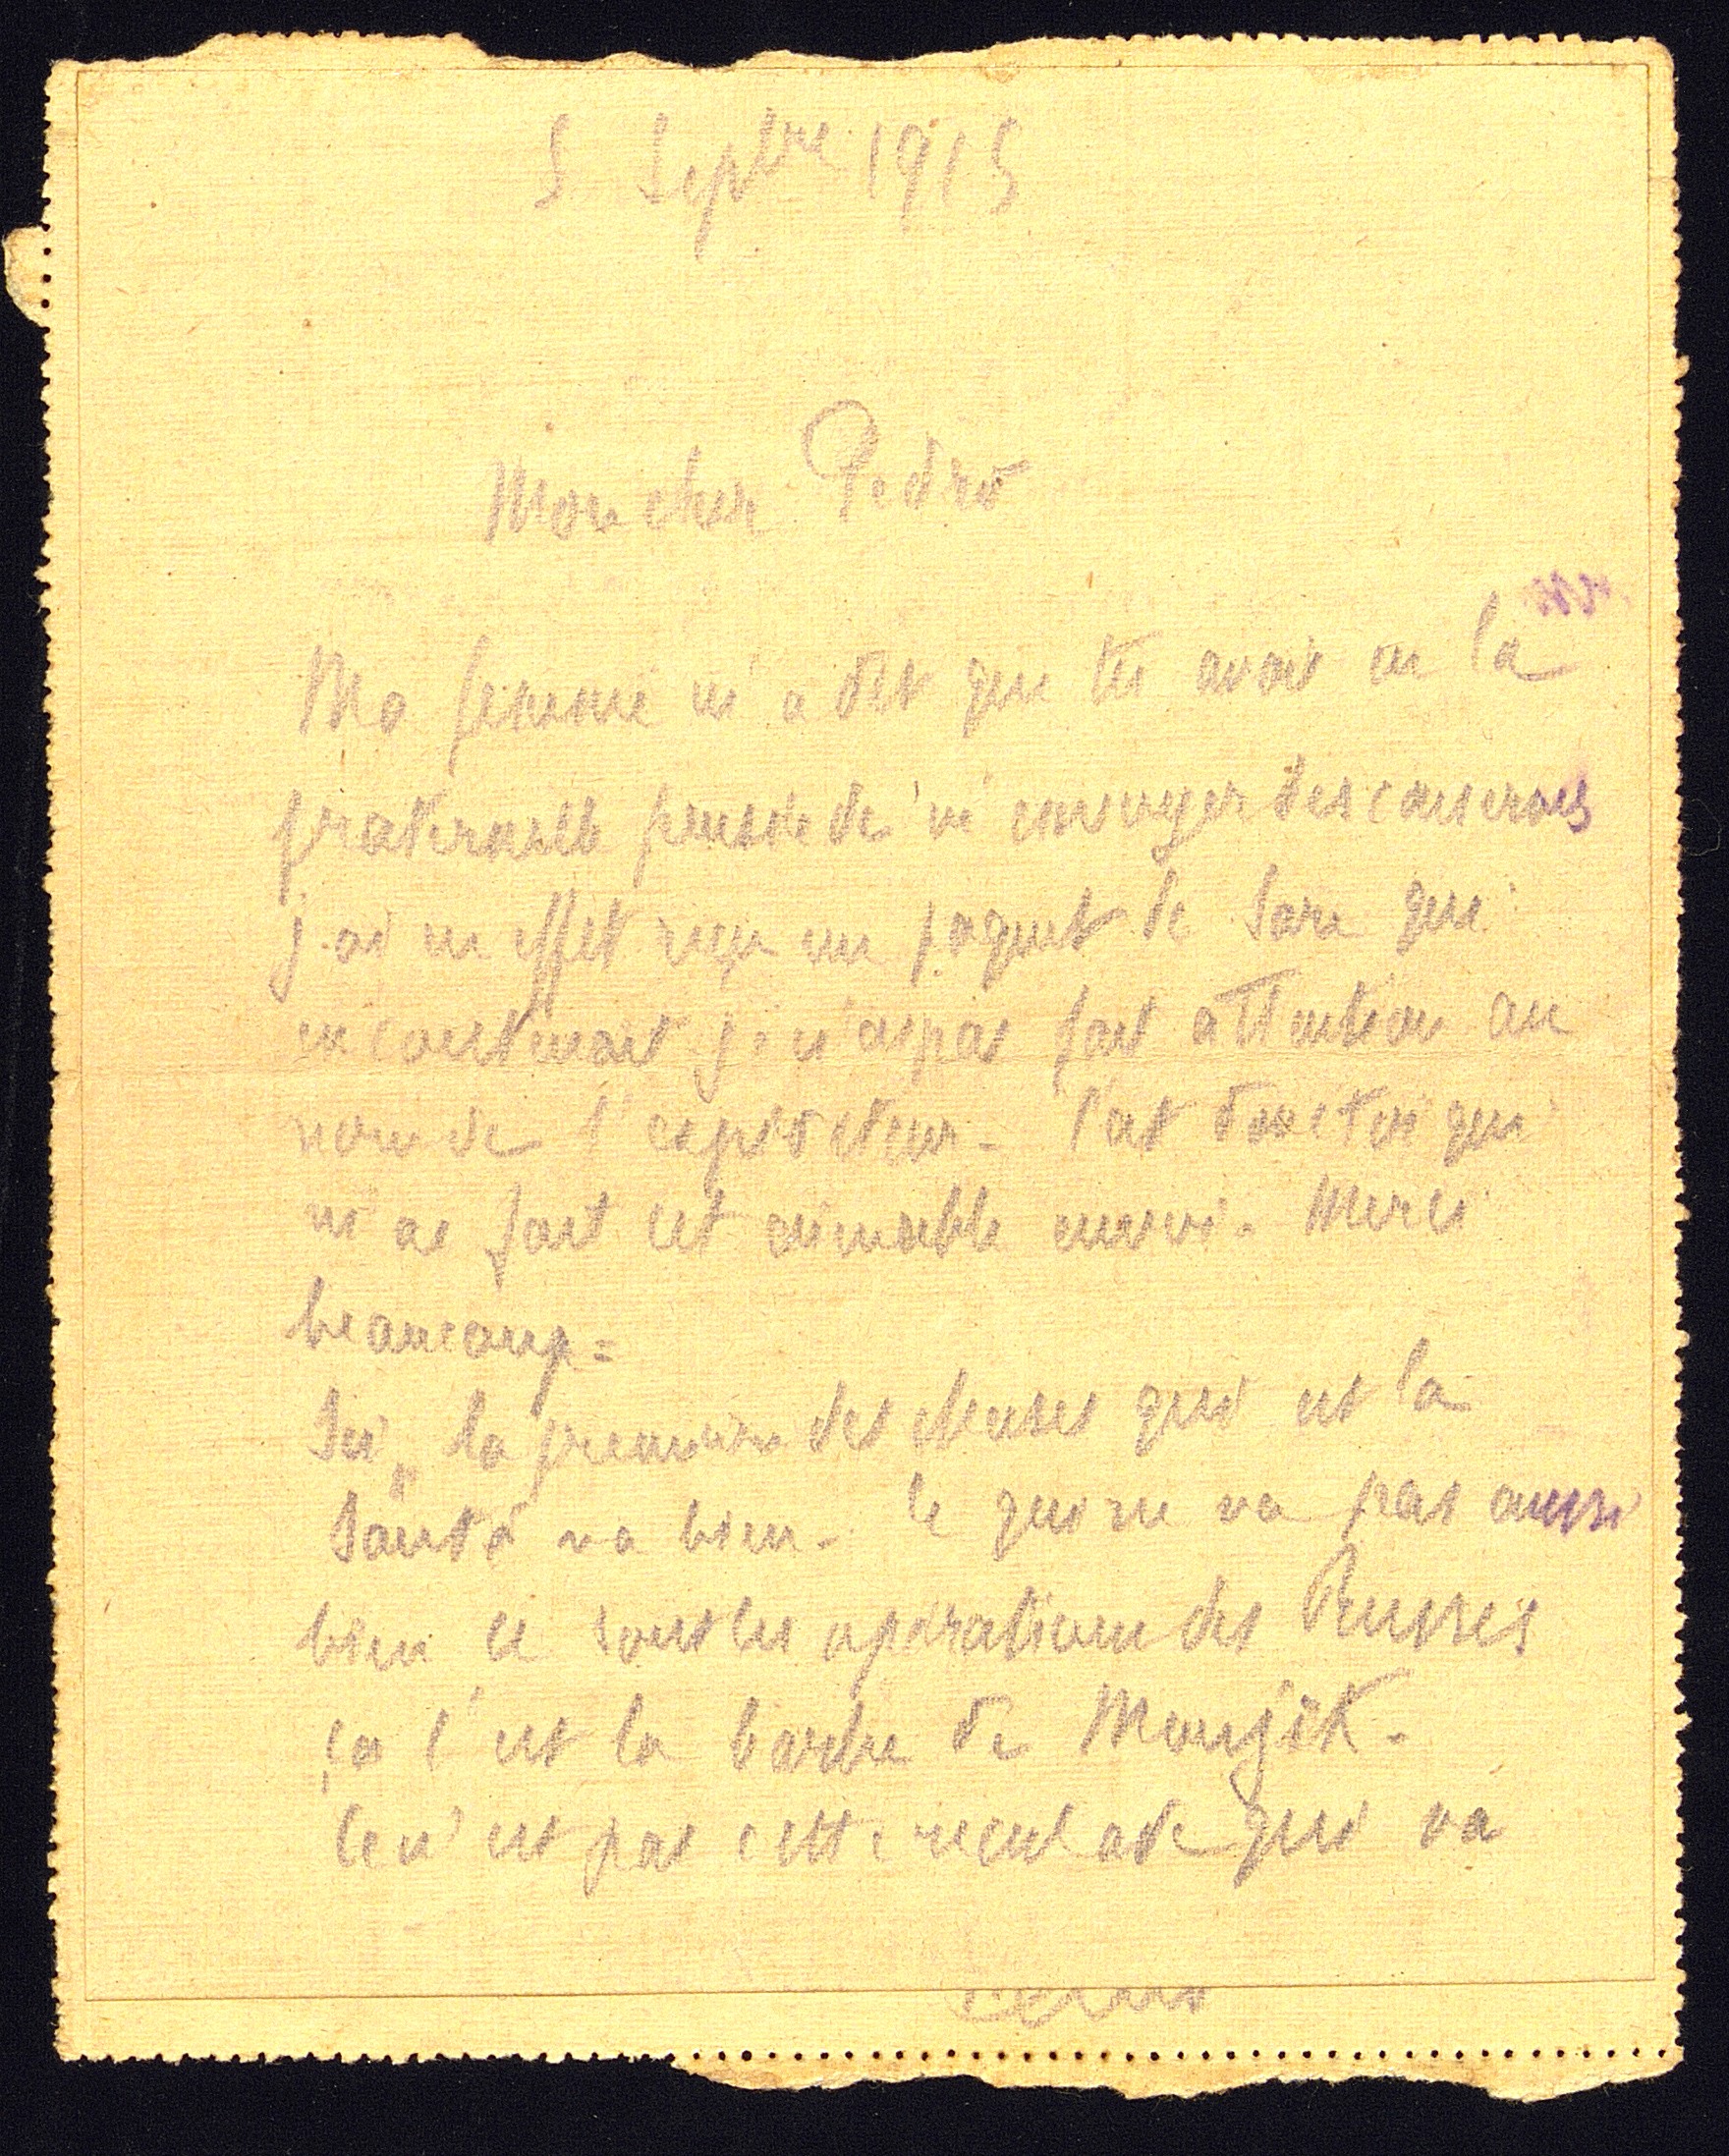 5 Septbre 1915
Mon cher Pedro
Ma femme m'a dit que tu avais eu la
fraternelle pensée de m'envoyer des conserves
j'ai en effet reçu un paquet de Sare qui
en contenait je n'ai pas fait attention au
nom de l'expéditeur - C'est donc toi qui
m'as fait cet aimable envoi. Merci
beaucoup =
Ici, la première des choses qui est la
Santé va bien - Ce qui ne va pas aussi
bien ce sont les opérations des Russes
ça c'est la barbe de Moujik.
Ce n'est pas cette reculade qui va